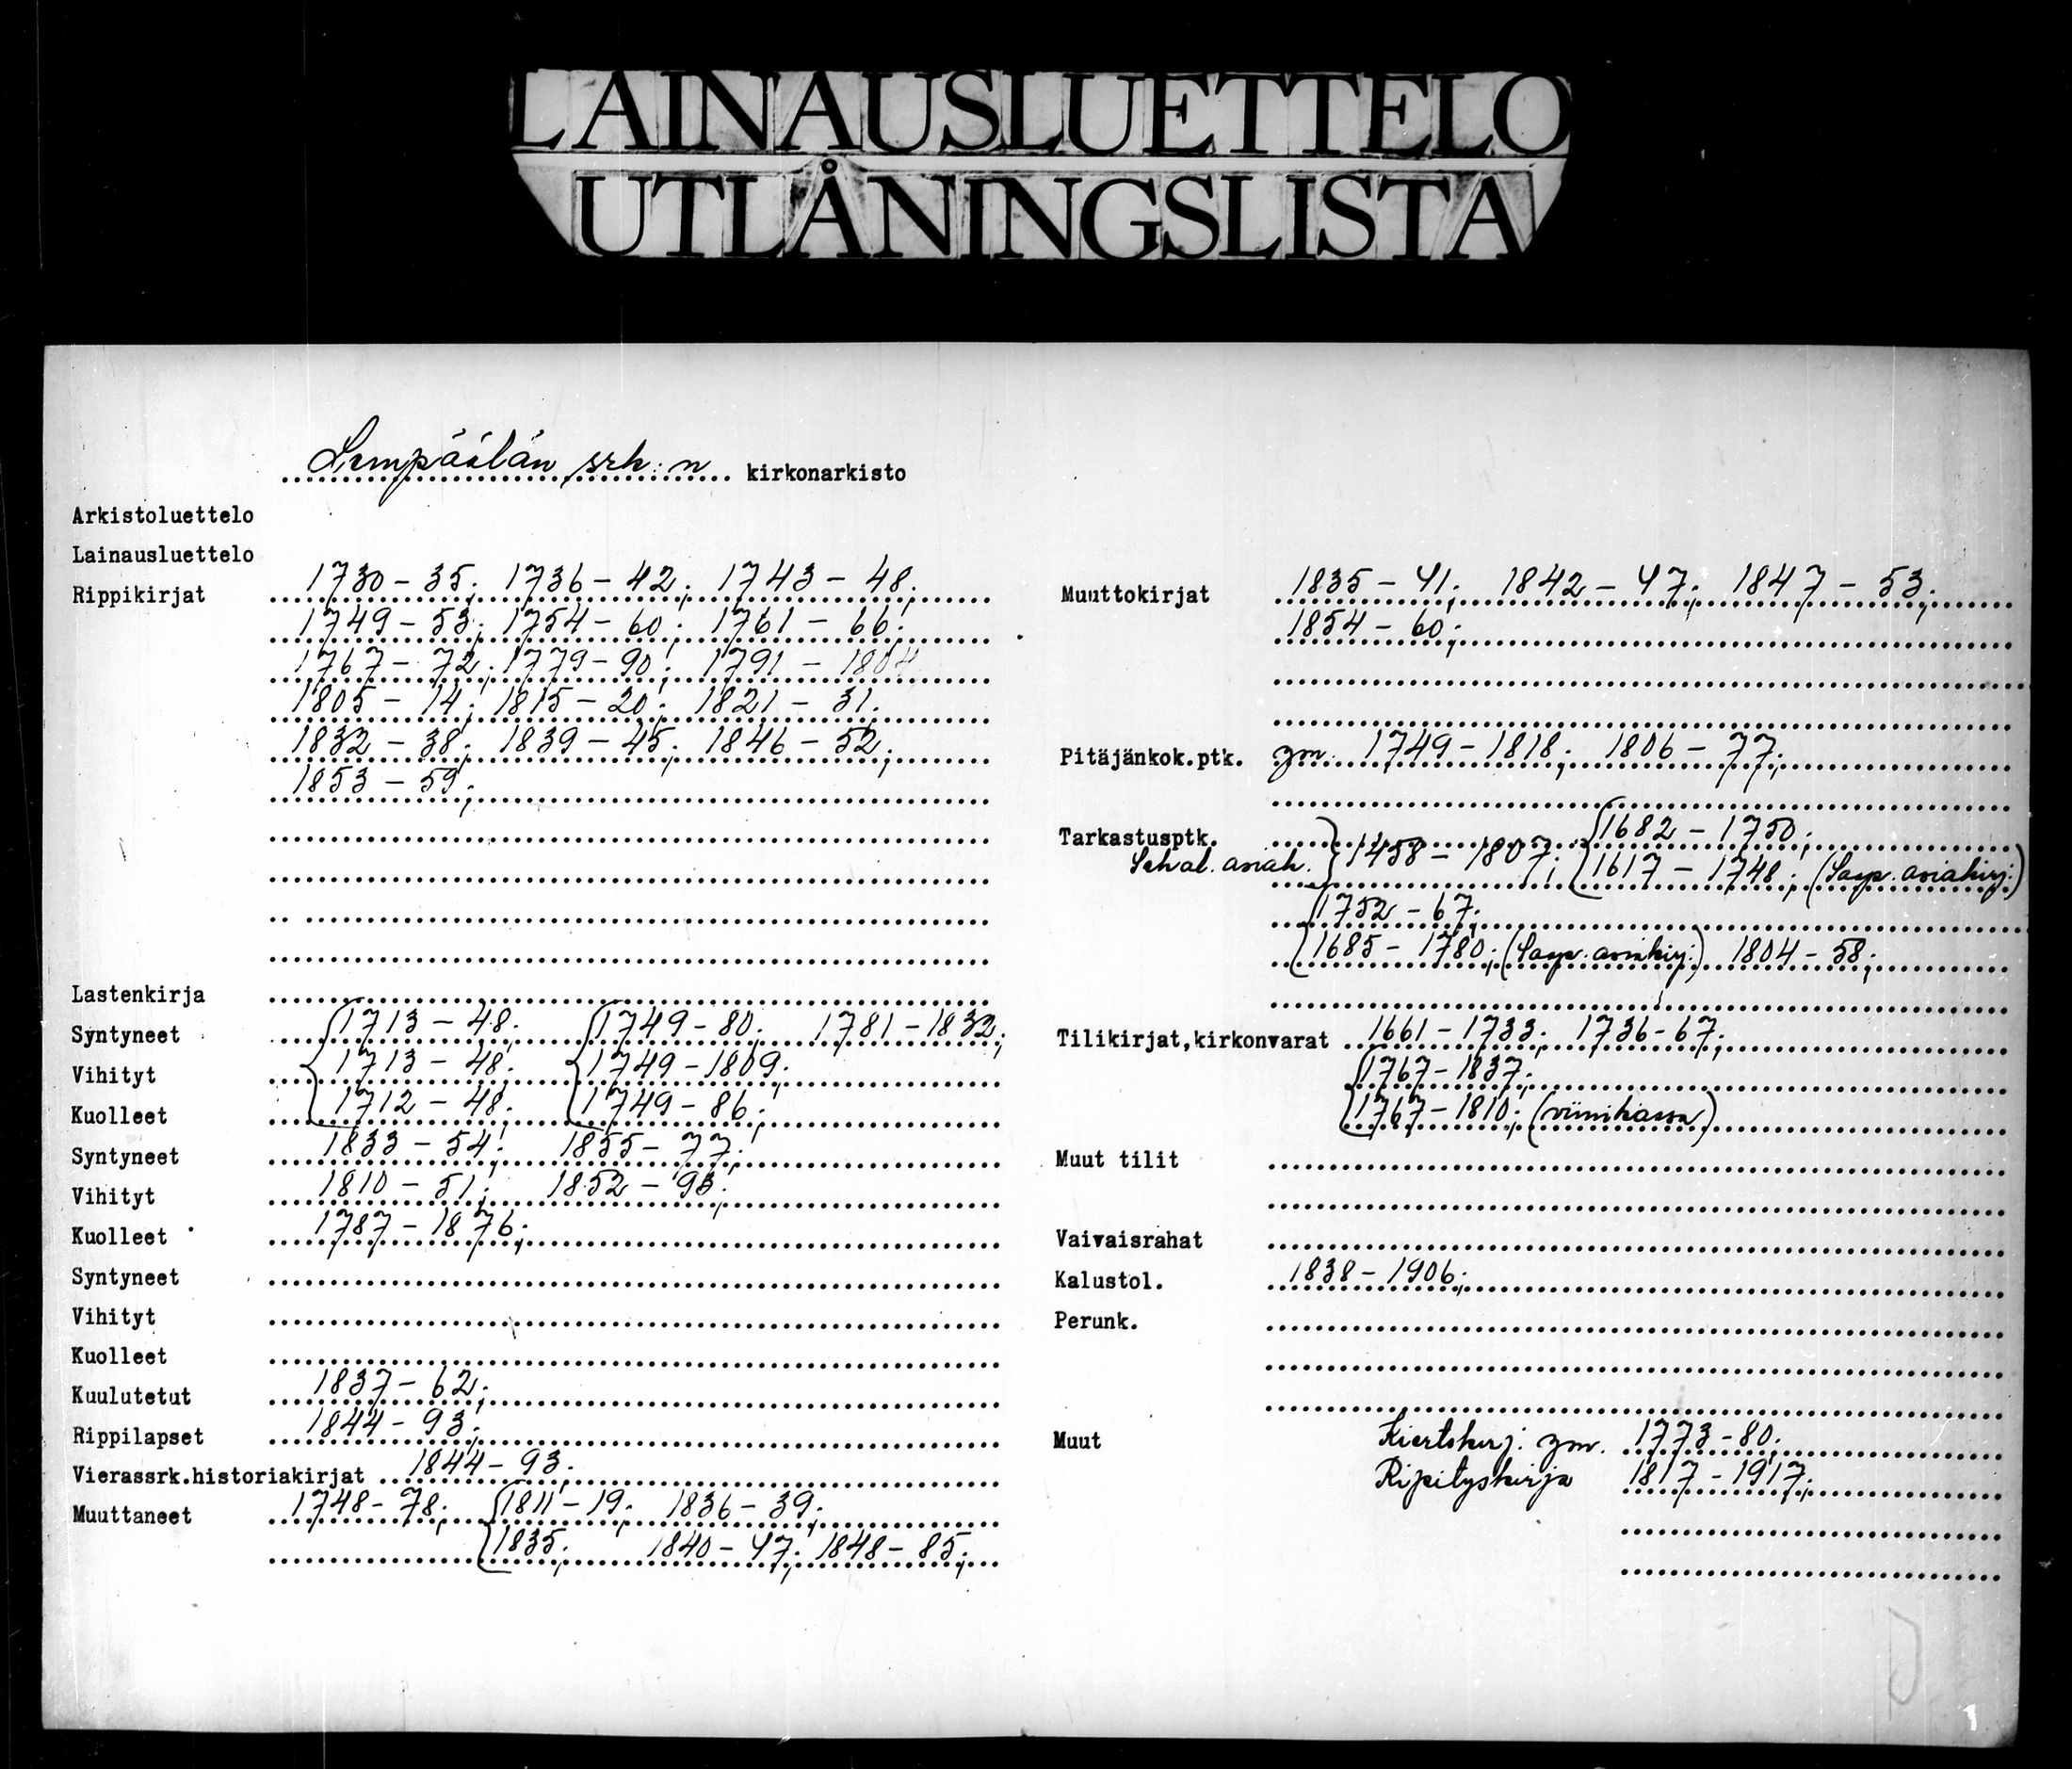 LAINAUSLUETTELO
UTLÅNINGSLISTA
Lempäälän srk:n kirkonarkisto
Arkistoluettelo
Lainausluettelo
Rippikirjat 1730 - 35; 1736 - 42; 1743 - 48;
1749 - 53; 1754 - 60; 1761 - 66;
1767 - 72; 1779 - 90; 1791 - 1804
1805 - 14; 1815 - 20; 1821 - 31;
1832 - 38; 1839 - 45; 1846 - 52;
1853 - 59;
Lastenkirja
Syntyneet 1713 - 48; 1749 - 80; 1781 - 1832;
Vihityt 1713 - 48; 1749 - 1809;
Kuolleet 1712 - 48; 1749 - 86;
Syntyneet 1833 - 54; 1855 - 77;
Vihityt 1810 - 51; 1852 - 93;
Kuolleet 1787 - 1876;
Syntyneet
Vihityt
Kuolleet
Kuulutetut 1837 - 62;
Rippilapset 1844 - 93;
Vierassrk.historiakirjat 1844 - 93;
Muuttaneet 1748 - 78; 1811 - 19; 1836 - 39;
1835; 1840 - 47; 1848 - 85;
Muuttokirjat 1835 - 41; 1842 - 47; 1847 - 53;
1854 - 60;
Pitäjänkok.ptk. ym. 1749 - 1818; 1806 - 77;
Tarkastusptk. 1682 - 1750;
Sekal. asiak. 1458 - 1807; 1617 - 1748; (Saap. asiakirj.)
1752 - 67;
1685 - 1780; (Saap. asiakirj.) 1804 - 58;
Tilikirjat,kirkonvarat 1661 - 1733; 1736 - 67;
1767 - 1837;
1767 - 1810; (viinikassa)
Muut tilit
Vaivaisrahat
Kalustol. 1838 - 1906;
Perunk.
Muut Kiertokirj. ym. 1773 - 80;
Ripityskirja 1817 - 1917;
1